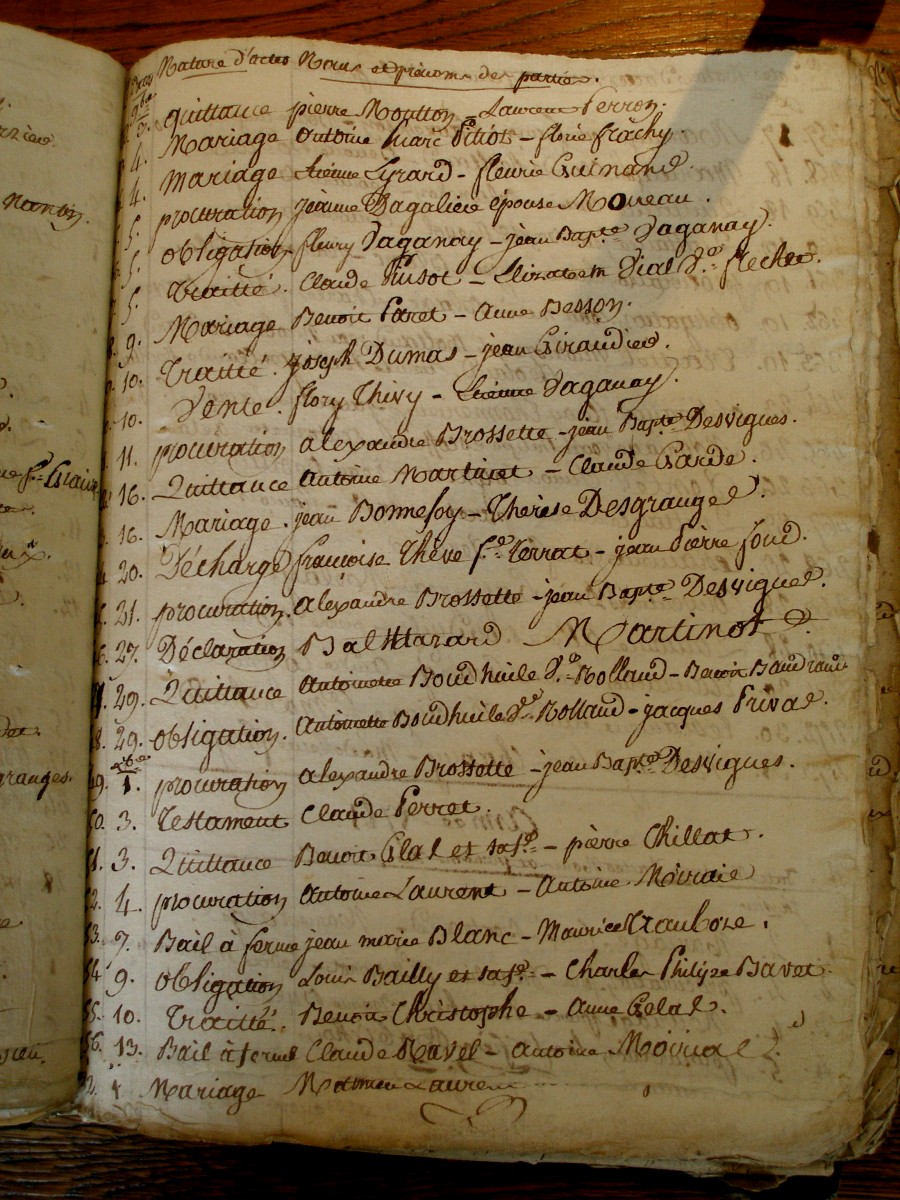 Nature d'actes Noms et prénoms des parties.
9bre
3. quittance pierre Moutton - Laurent Perron.
4. Mariage antoine marc Pitiot - florie frachy.
4. Mariage Etienne Lyrard - fleurie Guinand.
5. procuration jeanne Dagaliere épouse Moreau.
5. obligation fleury Daganay - jean Bapte Daganay.
5. traitté. Claude Pusot - Elizabeth Dial d.e fleches.
9. Mariage Benoit Paret - anne Besson.
10. traitté. joseph Dumas - jean Giraudier.
10. Vente. flory Thivy - Etienne Daganay.
11. procuration alexandre Brossette - jean Bapte Desvignes.
16. Quittance antoine Martinet - Claude Garde.
16. Mariage. jean Bonnefoy - Therese Desgranges.
20. Décharge francoise Theve f.e terrat - jean Pierre fond.
21. procuration. alexandre Brossette - jean Bapte Desvignes.
27. Déclaration Balthazard Martinot
29. Quittance antoinette Boudhuile d.e Rolland - Benoit
29. obligation. antoinette Boudhuile d.e Rolland - jacques Privat.
xbre
1. procuration alexandre Brossette - jean Bapte Desvignes.
50. 3. testament Claude Perret.
51. 3. Quittance Benoit Glat et sa f.e - pierre Chillat.
52. 4. procuration antoine Laurent - antoine
53. 7. Bail à ferme jean marie Blanc - Maurice
54. 9. obligation Louis Bailly et sa f.e - Charles Philipe Bavet.
55. 10. traitté. Benoit Christophe - anne Gelat.
56. 13. Bail à ferme Claude Ravel - antoine
Mariage Laurent